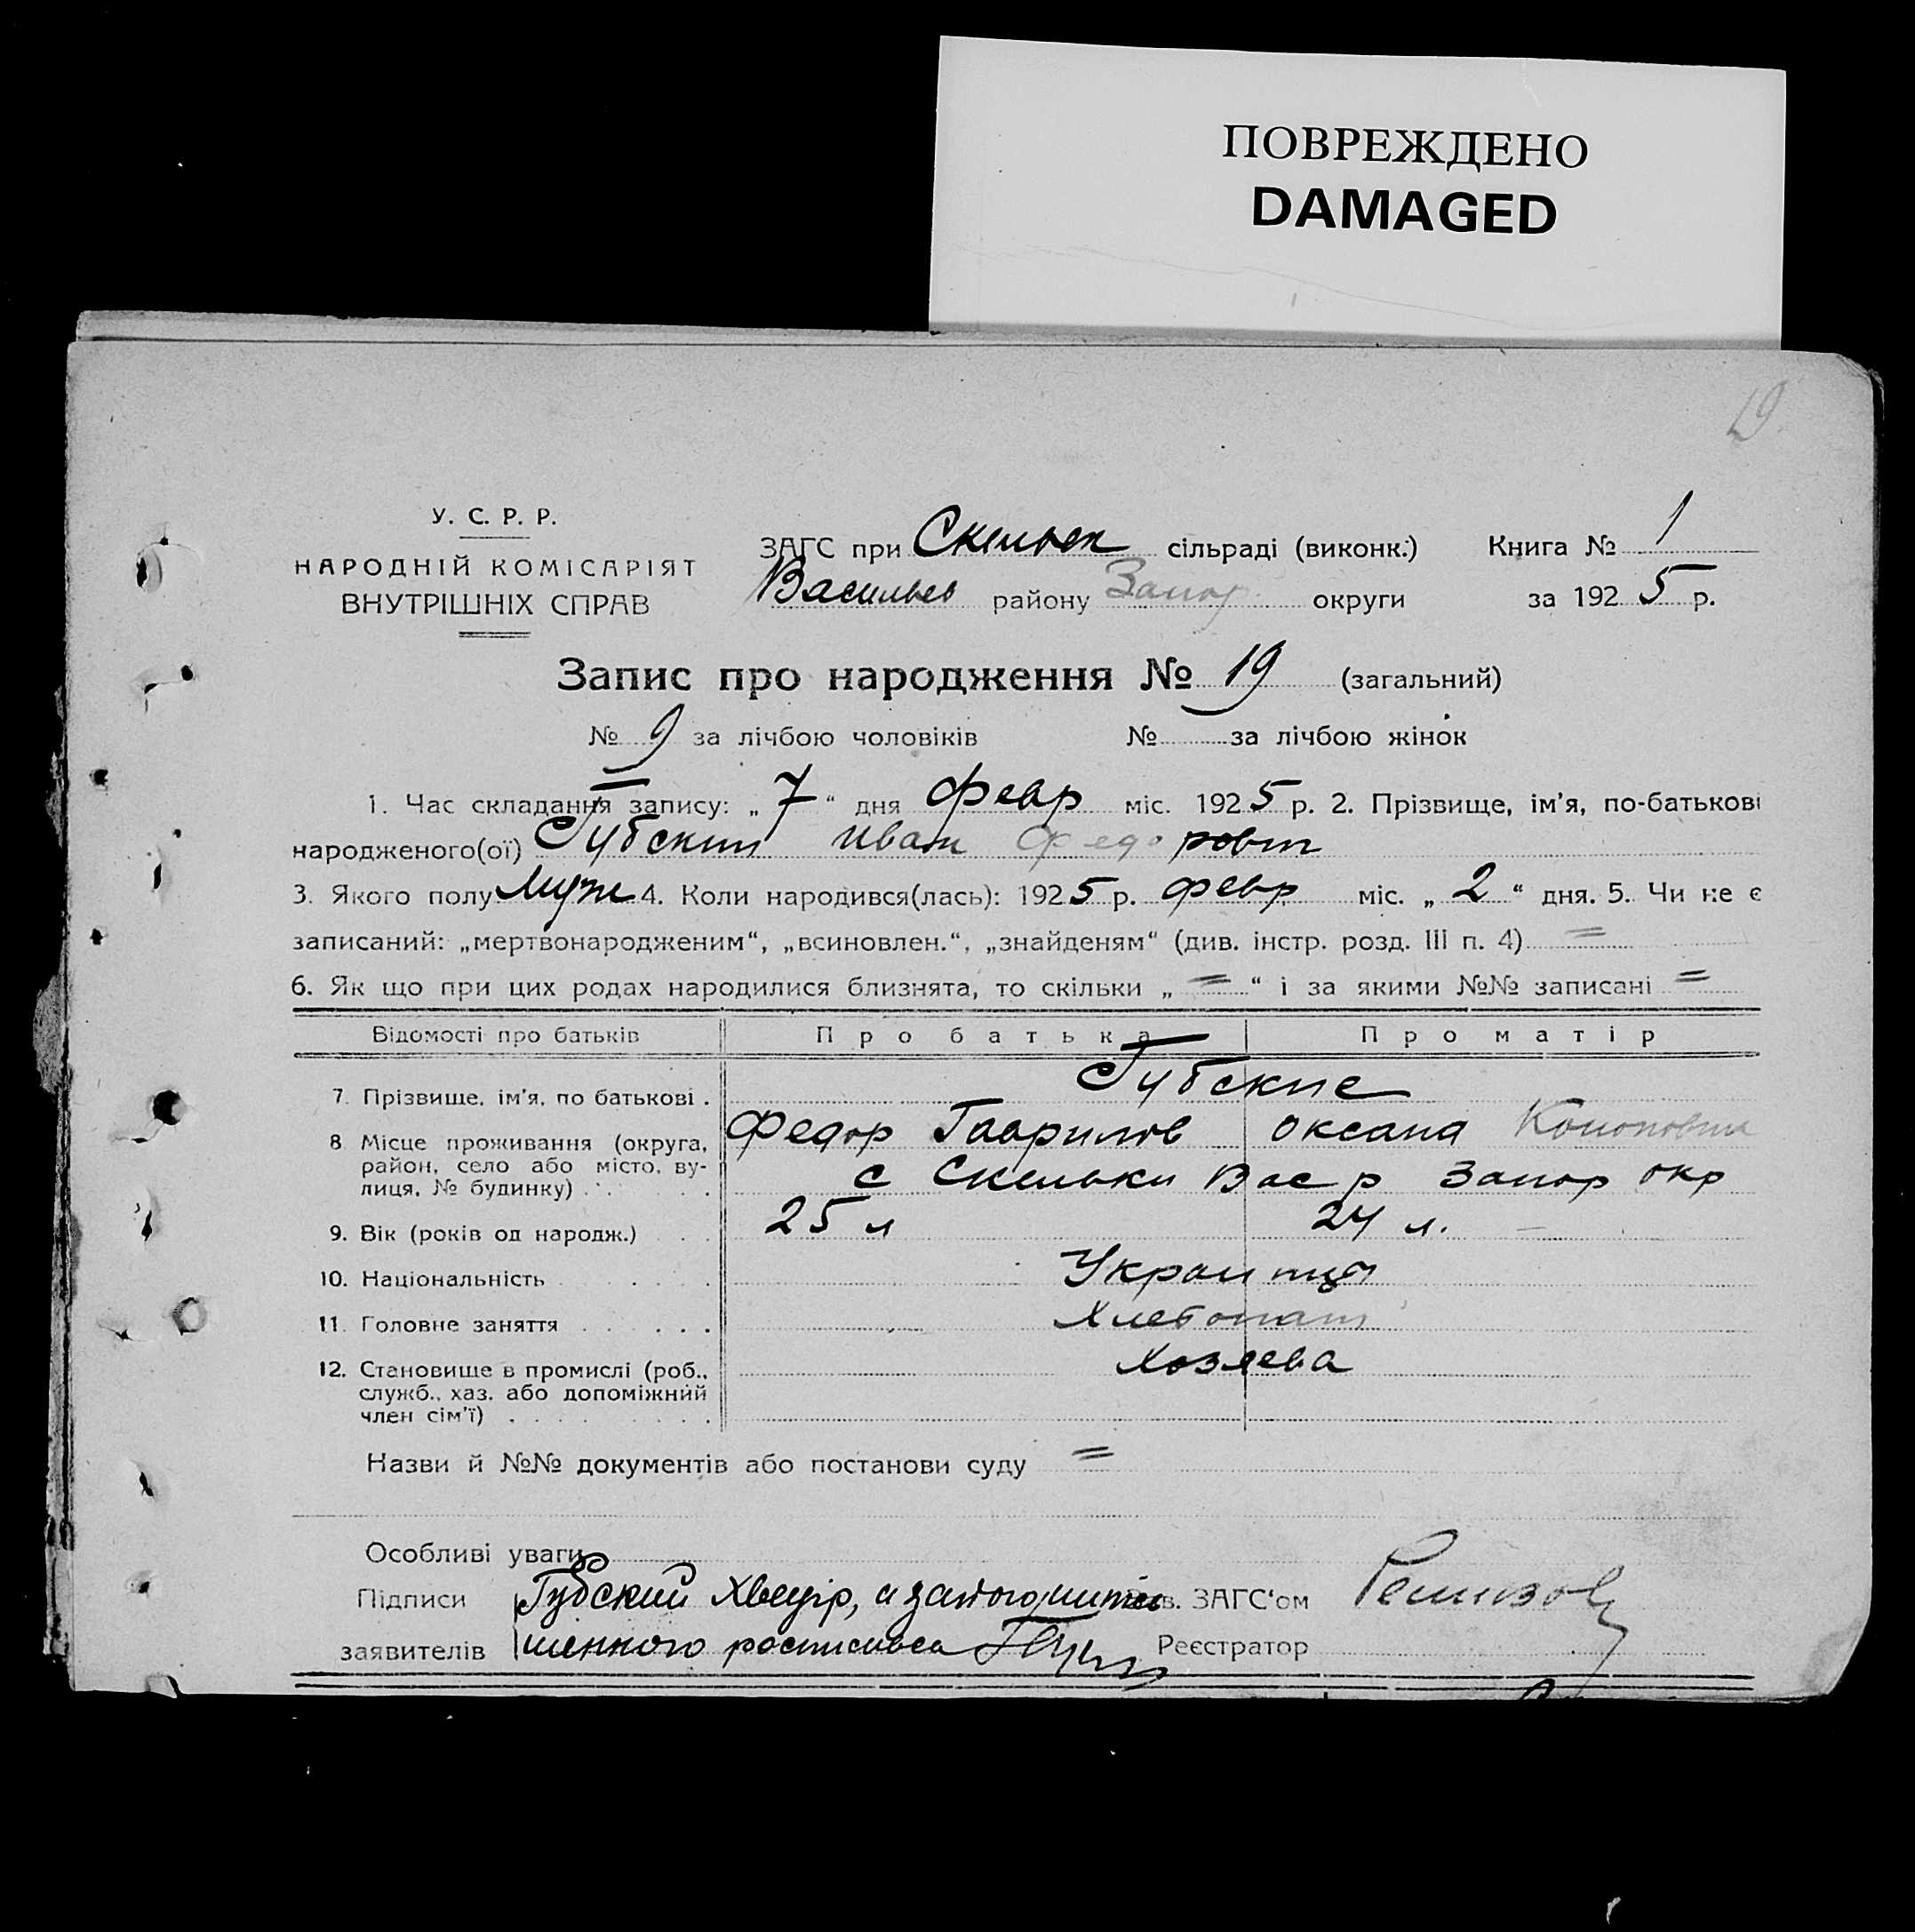 ПОВРЕЖДЕНО
DAMAGED
19
У. С. Р. Р.
НАРОДНІЙ КОМІСАРІЯТ
ВНУТРІШНІХ СПРАВ
ЗАГС при Скельек сільраді (виконк.) Книга № 1
Васильев району Запор округи за 1925 р.
Запис про народження № 19 (загальний)
№ 9 за лічбою чоловіків № за лічбою жінок
1. Час складання запису: „ 7 “ дня февр міс. 1925 р. 2. Прізвище, ім’я, по-батькові
народженого(ої) Губский Иван Федорович
3. Якого полу Муж 4. Коли народився(лась): 1925 р. февр міс. „ 2 “ дня. 5. Чи не є
записаний: „мертвонародженим“, „всиновлен.“, „знайденям“ (див. інстр. розд. III п. 4) =
6. Як що при цих родах народилися близнята, то скільки „ = “ і за якими №№ записані =
Відомості про батьків Про батька Про матір
7. Прізвище, ім’я, по батькові . Губские
Федор Гаврилов Оксана Кононовна
8 Місце проживання (округа,
район, село або місто, ву-
лиця, № будинку) . . . с Скельки Вас р Запор окр
9. Вік (років од народж.) . . 25 л 24 л.
10. Національність . . . . Украинцы
11. Головне заняття . . . . . Хлебопаш
12. Становище в промислі (роб.,
служб., хаз. або допоміжний
член сім’ї) . . . . . . . Хозяева
Назви й №№ документів або постанови суду =
Особливі уваги
Підписи Губский Хведір, а за ЗАГС‘ом
заявителів росписався Реєстратор